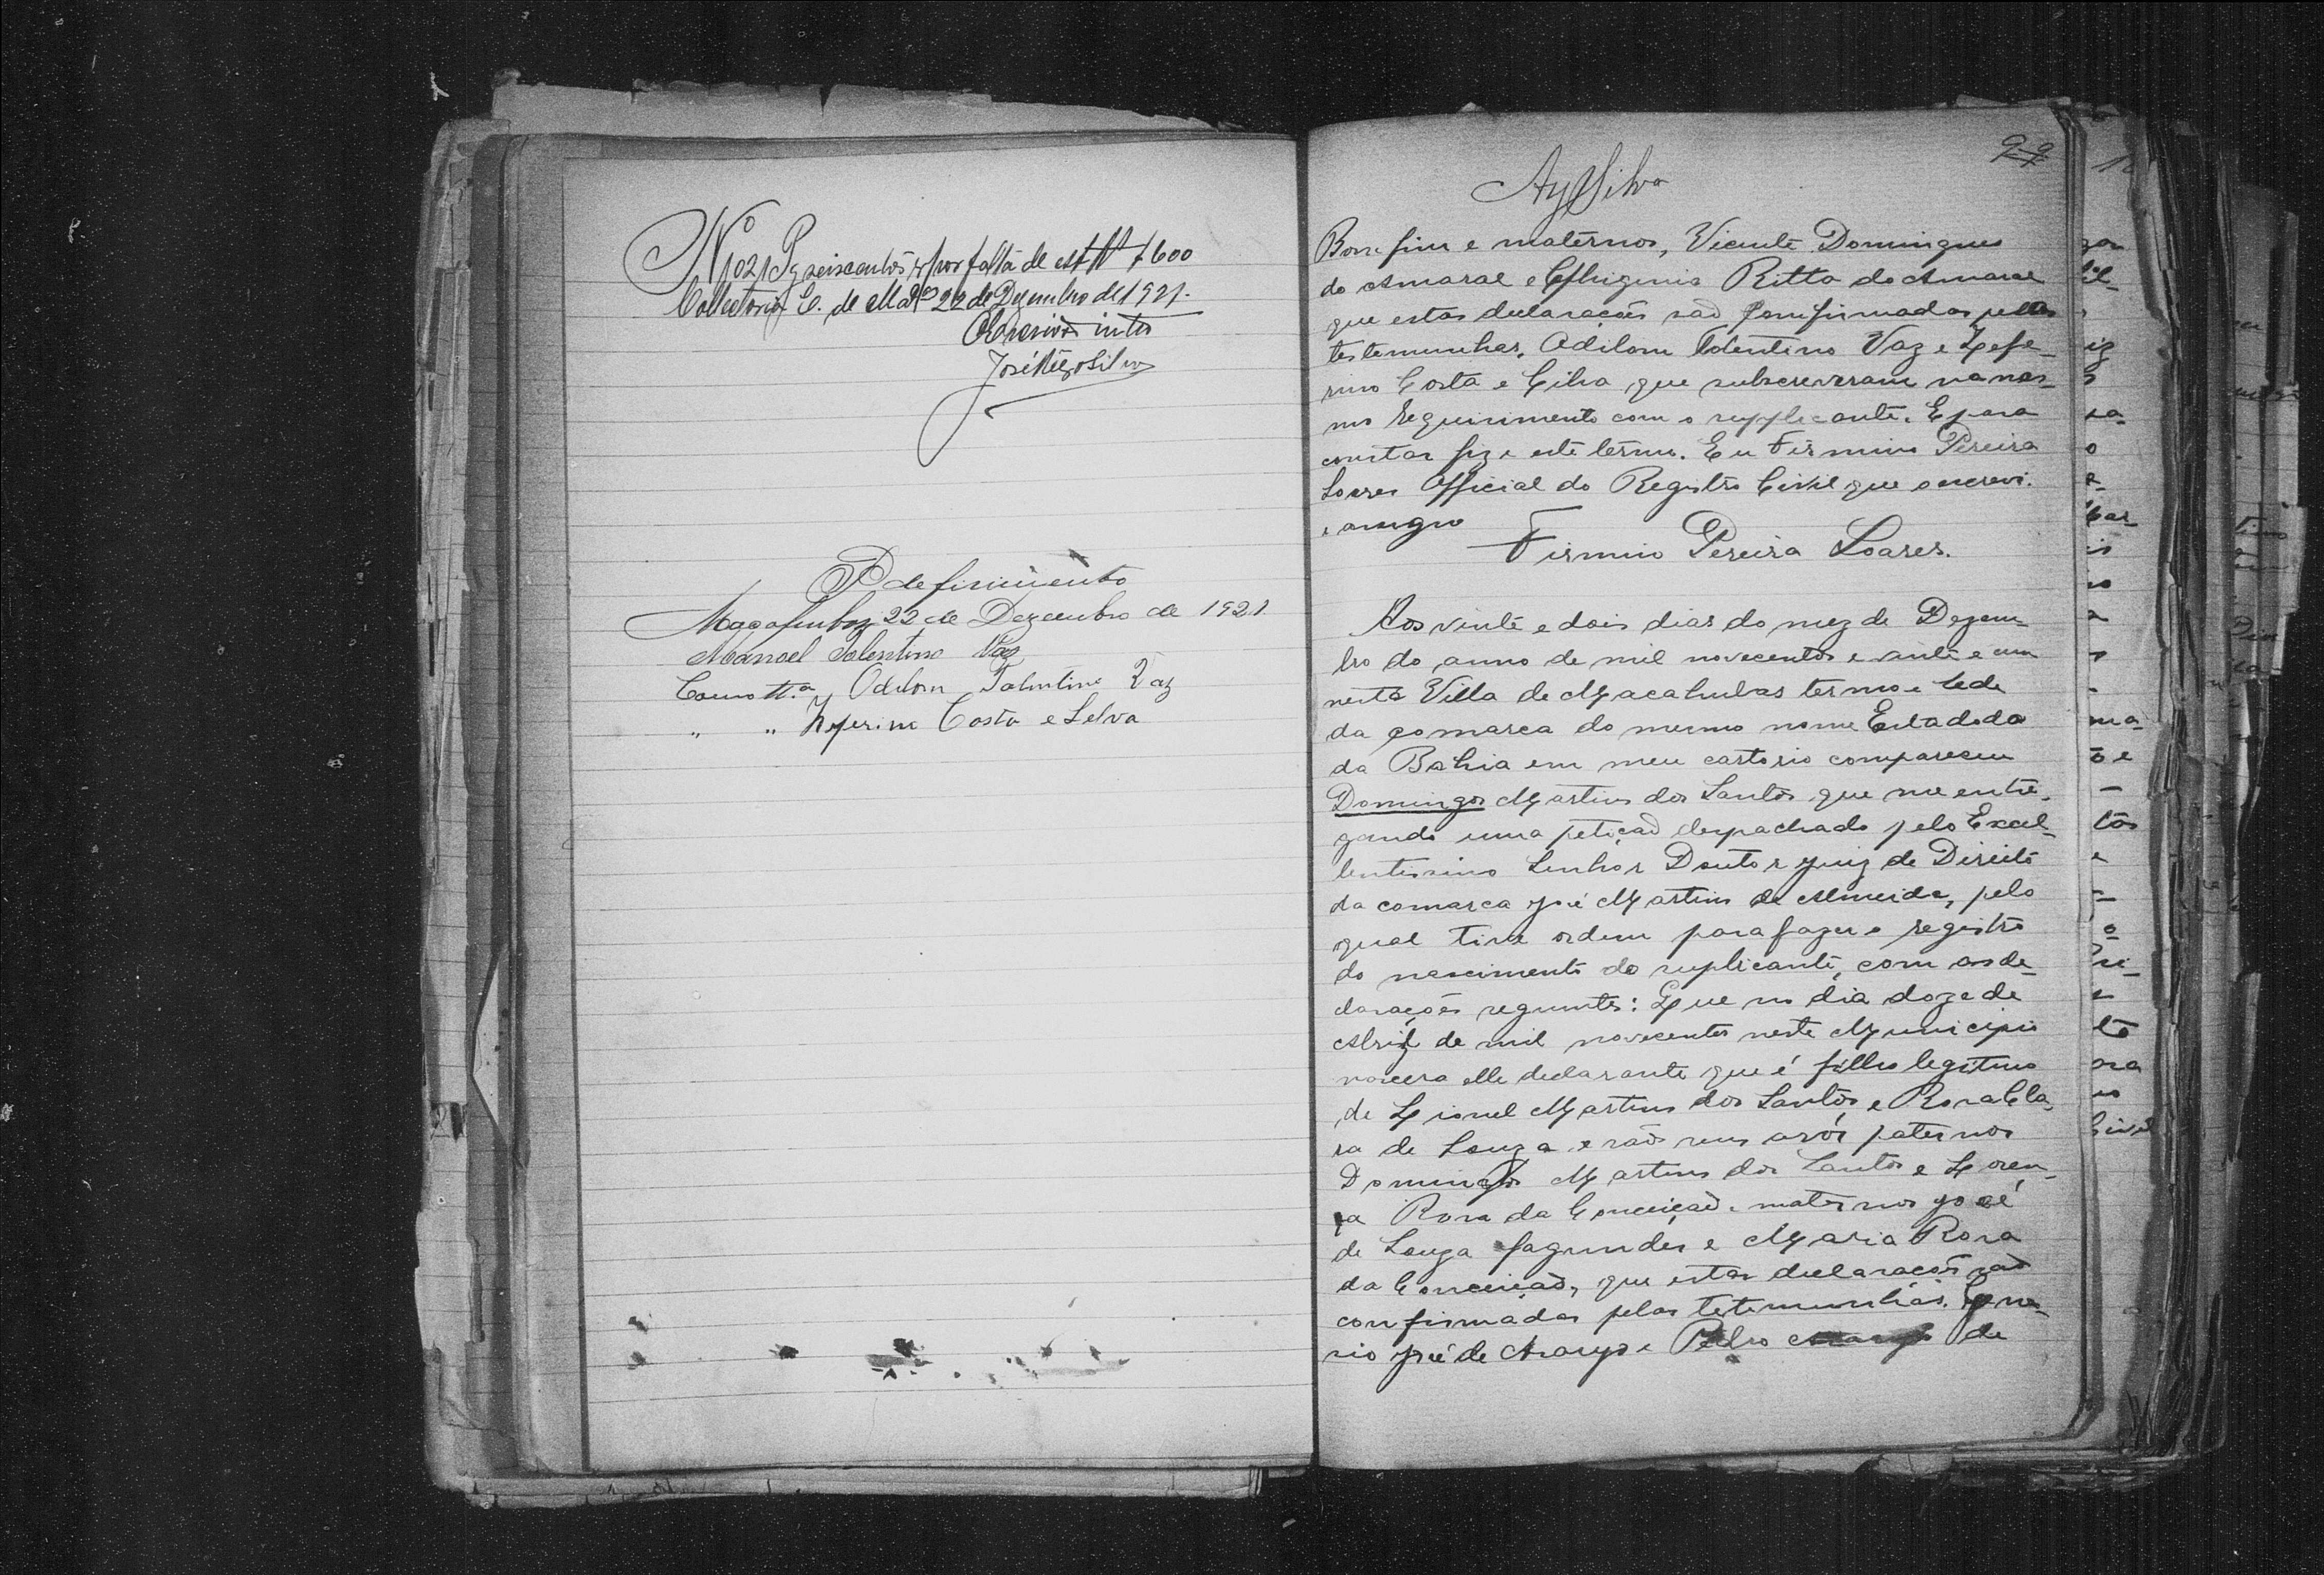 Nº 1021 Pg seiscentos rs por falta de estª $600
Collectoria E. de Macas 22 de Dezembro de 1921.
O Escrivão intº
José Rêgo Silva
P deferimento
Macahubas 22 de Dezembro de 1921
Manoel Tolentino Vaz
Como tt.ª Odilon Tolentino Vaz
" " Zeferino Costa e Selva
99
AySilva
Bomfim e maternos, Vicente Domingues
do Amaral e Ephigenia Ritta do Amaral
que estas declarações são comfirmadas pellas
testemunhas, Adilom Tolentino Vaz e Zefe-
rino Costa e Cilva que subscreveram na mes-
mo requirimento com o supplicante. E para
constar fiz e este termo. Eu Firmino Pereira
Soares Official do Registro Civil que o escrevi.
e assigno
Firmino Pereira Soares.
Aos vinte e dois dias do mez de Dezem-
bro do anno de mil novecentos e vinte e um
nesta Villa de Macahubas termo e séde
da comarca do mesmo nome Estado da
da Bahia em meu cartorio compareceu
Domingos Martins dos Santos que me entre-
gando uma petição despachado pelo Excel-
lentissimo Senhor Doutor Juiz de Direito
da comarca José Martins de Almeida, pelo
qual tive ordem para fazer o registro
do nascimento do suplicante, com as de-
clarações seguintes: Que no dia doze de
Abril de mil novecentos neste Municipio
nascera elle declarante que é filho legitimo
de Lionel Martins dos Santos e Rosa Cla-
ra de Souza e são seus avós paternos
Domingos Martins dos Santos e Loren-
ça Rosa da Conceição e maternos José
de Souza Fagundes e Maria Rosa
da Conceição, que estas declarações são
confirmadas pelas testemunhas. Gene-
rio José de Araujo e Pedro de